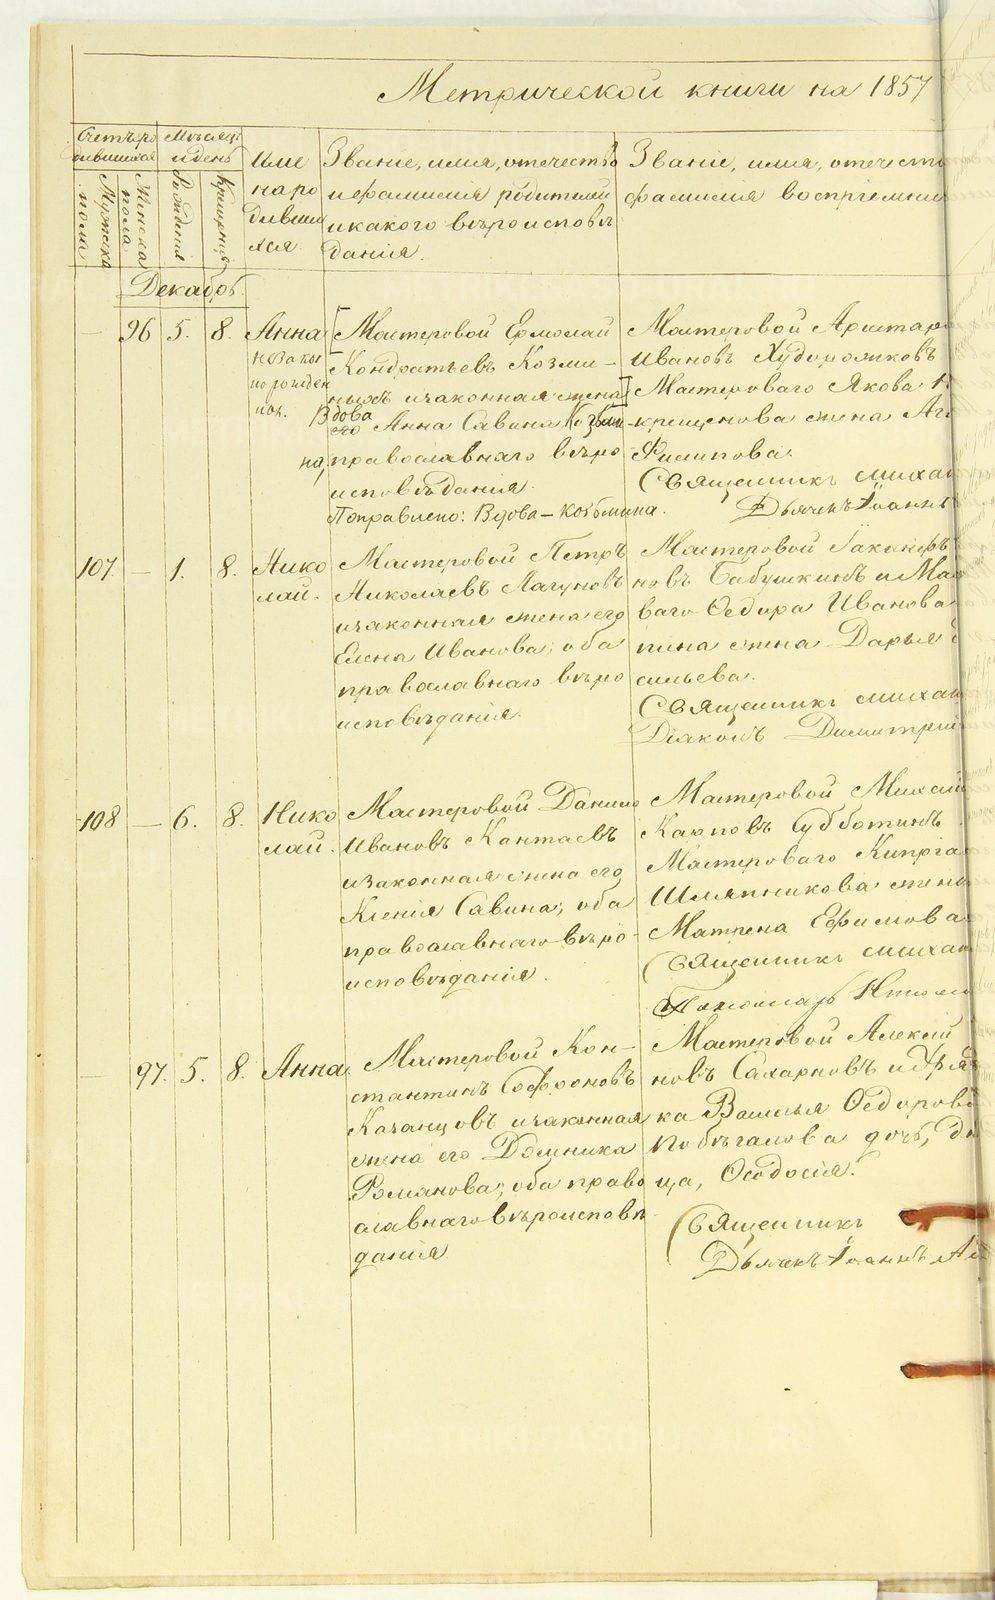 Метрической книги на 1857
Счетъ ро
дившихся
Мѣсяцъ
и день
Мужска
пола.
Женска
пола
Рожденія
Крещенія
Имe
на ро
дивши
хся.
Званіе, имя, отечество
и фамилия родителей
и какого вѣроисповѣ
данія.
Званіе, имя, отечеств
фамилия воспріемни
Декабрь
— 96 5. 8. Анна
незакон
норожден
ная.
[Мастеровой Ермолай
Кондратьевъ Козми-
ныхъ и законная жена]
Вдова
его Анна Савина Козьми-
на, православнаго вѣро
исповѣданія.
Поправлено: Вдова – козьмина.
Мастеровой Аристар
Ивановъ Худорожковъ
Мастероваго Якова
крещенова жена Аг
Филипова.
Священникъ Михаи
Дьячекъ Іоаннъ
107. — 1. 8. Нико
лай.
Мастеровой Петръ
Николаевъ Лагуновъ
и законная жена его
Елена Иванова; оба
православнаго вѣро
исповѣданія.
Мастеровой
новъ Бабушкинъ и Мас
ваго Ѳедора Иванова
пина жена Дарья
сильева.
Священникъ Михаи
Діаконъ Димитрій
108 — 6. 8. Нико
лай.
Мастеровой Данило
Ивановъ Кантаевъ
и законная жена его
Ксенія Савина; оба
православнаго вѣро-
исповѣданія.
Мастеровой Михаи
Карповъ Субботинъ
Мастероваго Кипріа
Шляпникова жена
Матрена Ефимова
Священникъ Михаи
Пономарь
— 97. 5. 8. Анна
Мастеровой Кон-
стантинъ Софроновъ
Казанцовъ и законная
жена его Домника
Романова; оба право
славнаго вѣроисповѣ
данія
Мастеровой Алексѣй
новъ Сахарновъ и
ка Василья Ѳедорова
Побѣгалова дочь, дѣ
ца, Ѳеодосія.
Священникъ
Дьячекъ Іоаннъ
METRIKI.GASO-URAL.RU